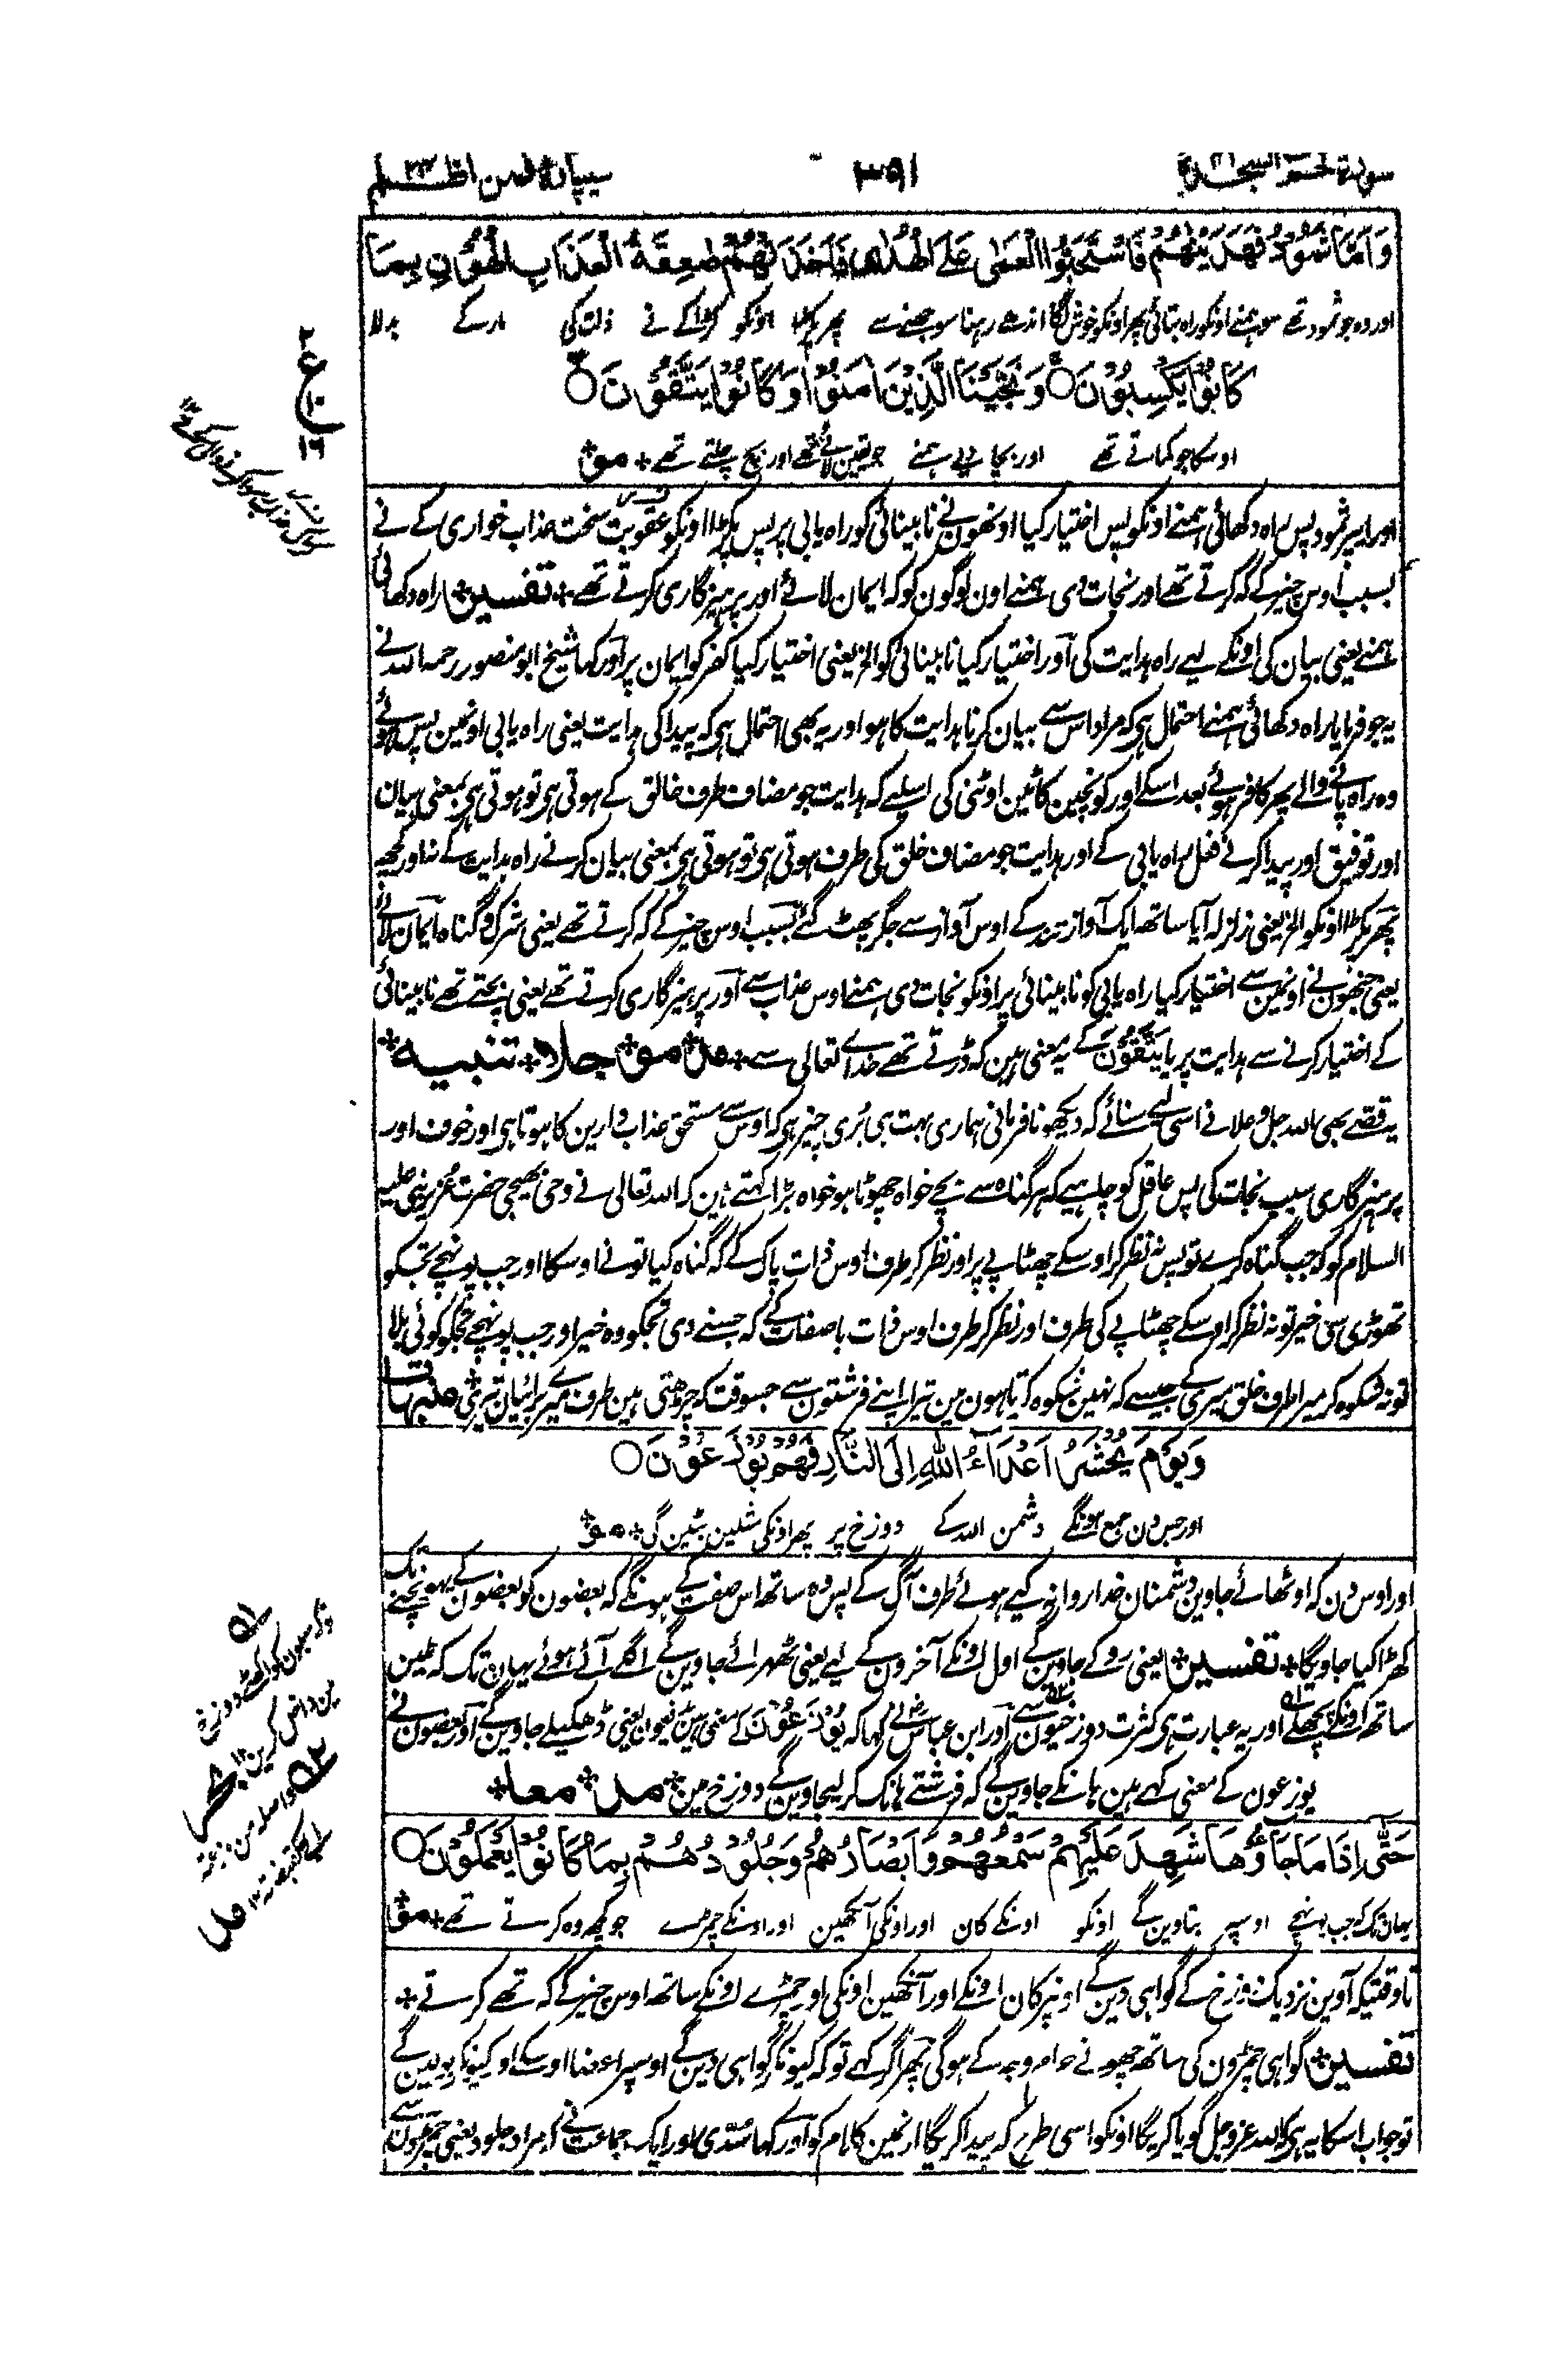 سورة حٰم السجدة ٤١
٣٩١
سیپارہ فمن اظلم ٢٤
وَاَمَّا ثَمُوْدُ فَهَدَيْنٰهُمْ فَاسْتَحَبُّوا الْعَمٰى عَلَى الْهُدٰى فَاَخَذَتْهُمْ صٰعِقَةُ الْعَذَابِ الْهُوْنِ بِمَا
اور وہ جو ثمود تھے سو ہمنے اونکو راہ بتائی پھر اونکو خوش لگا اندھے رہنا سوجھنے سے پھر پکڑا اونکو کڑاکے نے ذلت کی مار کے بدلا
كَانُوْا يَكْسِبُوْنَ وَنَجَّيْنَا الَّذِيْنَ اٰمَنُوْا وَكَانُوْا يَتَّقُوْنَ
اوسکا جو کماتے تھے اور بچا دیے ہمنے جو یقین لائے تھے اور بچ چلتے تھے ٭ مو٭
اور اسیر ثمود پس راہ دکھائی ہمنے اونکو پس اختیار کیا اونھون نے نابینائی کو راہ یابی پر پس پکڑا اونکو عقوبت سخت عذاب خواری کے نے
بسبب اوس چیز کے کہ کرتے تھے اور نجات دی ہمنے اون لوگون کو کہ ایمان لائے اور پرہیزگاری کرتے تھے ٭ تفسیر٭ راہ دکھائی
ہمنے یعنی بیان کی اونکے لیے راہ ہدایت کی اور اختیار کیا نابینائی کو الخ یعنی اختیار کیا کفر کو ایمان پر اور کہا شیخ ابو منصور رحمہ اللہ نے
یہ جو فرمایا راہ دکھائی ہمنے احتمال ہی کہ مراد اس سے بیان کرنا ہدایت کا ہو اور یہ بھی احتمال ہی کہ پیدا کی ہدایت یعنی راہ یابی اونمین پس ہوئے
وہ راہ پانے والے پھر کافر ہوئے بعد اسکے اور کونچین کاٹین اوٹنی کی اسلیے کہ ہدایت جو مضاف طرف خالق کے ہوتی ہی تو ہوتی ہی بمعنی بیان
اور توفیق اور پیدا کرنے فعل راہ یابی کے اور ہدایت جو مضاف خلق کی طرف ہوتی ہی تو ہوتی ہی بمعنی بیان کرنے راہ ہدایت کے نہ اور کچھ
پھر پکڑا اونکو الخ یعنی زلزلہ آیا ساتھ ایک آواز تند کے اوس آواز سے جگر پھٹ گئے بسبب اوس چیز کے کہ کرتے تھے یعنی شرک و گناہ ایمان لائے
یعنی جنھون نے اونمین سے اختیار کیا راہ یابی کو نابینائی پر اونکو نجات دی ہمنے اوس عذاب سے اور پرہیزگاری کرتے تھے یعنی بچتے تھے نابینائی
کے اختیار کرنے سے ہدایت پر یا یَتَّقُوْنَ کے یہ معنی ہین کہ ڈرتے تھے خداے تعالی سے ٭ مد٭ مو٭ جلا٭ تنبیہ٭
یہ قصے بھی اللہ جل و علا نے اسی لیے سنائے کہ دیکھو نافرمانی ہماری بہت ہی بُری چیز ہی کہ اوس سے مستحق عذاب دارین کا ہوتا ہی اور خوف اور
پرہیزگاری سبب نجات کی پس عاقل کو چاہیے کہ ہر گناہ سے بچے خواہ چھوٹا ہو خواہ بڑا کہتے ہین کہ اللہ تعالی نے وحی بھیجی حضرت عُزیر نبی علیہ
السلام کو کہ جب گناہ کرے تو پس نہ نظر کر اوسکے چھٹاپے پر اور نظر کر طرف اوس ذات پاک کے کہ گناہ کیا تو نے اوسکا اور جب پہنچے تجکو
تھوڑی سی خیر تو نہ نظر کر اوسکے چھٹاپے کی طرف اور نظر کر طرف اوس ذات باصفات کے کہ جسنے دی تجکو وہ خیر اور جب پہنچے تجکو کوئی بلا
تو نہ شکوہ کر میرا طرف خلق میری کے جیسے کہ نہین شکوہ کرتا ہون مین تیرا اپنے فرشتون سے جسوقت کہ چڑھتی ہین طرف میرے برائیان تیری٭
وَيَوْمَ يُحْشَرُ اَعْدَآءُ اللّٰهِ اِلَى النَّارِ فَهُمْ يُوْزَعُوْنَ
اور جس دن جمع ہونگے دشمن اللہ کے دوزخ پر پھر اونکی مثلین بٹین گی ٭ مو٭
اور اوس دن کہ اوٹھائے جاوین دشمنان خدا روانہ کیے ہوئے طرف آگ کے پس وہ ساتھ اس صفت کے ہونگے کہ بعضون کو بعضون کے پہونچنے تک
کھڑا کیا جاویگا ٭ تفسیر٭ یعنی روکے جاوین گے اول اونکے آخرون کے لیے یعنی ٹھہرائے جاوین گے اگلے آئے ہوئے یہان تک کہ ملین
ساتھ اونکے پچھلے اور یہ عبارت ہی کثرت دوزخیون سے اور ابن عباس نے کہا کہ یُوْزَعُوْنَ کے معنی ہین یعنی ڈھکیلے جاوین گے اور بعضون نے
یوزعون کے معنی کہے ہین ہانکے جاوین گے کہ فرشتے ہانک کر لیجاوین گے دوزخ مین ٭ مد٭ معا٭
حَتّٰٓى اِذَا مَا جَآءُوْهَا شَهِدَ عَلَيْهِمْ سَمْعُهُمْ وَاَبْصَارُهُمْ وَجُلُوْدُهُمْ بِمَا كَانُوْا يَعْمَلُوْنَ
یہان تک کہ جب پہنچے اوسپر بتاوین گے اونکو اونکے کان اور اونکی آنکھین اور اونکے چمڑے جو کچھ وہ کرتے تھے ٭ مو٭
تا وقتیکہ آوین نزدیک دوزخ کے گواہی دین گے اونپر کان اونکے اور آنکھین اونکی اور چمڑے اونکے ساتھ اوس چیز کے کہ تھے کرتے ٭
تفسیر٭ گواہی چمڑون کی ساتھ چھونے حرام وغیرہ کے ہوگی پھر اگر کہے تو کہ کیونکر گواہی دین گے اوسپر اعضا اوسکے اور کیونکر بولین گے
تو جواب اسکا یہ ہی کہ اللہ عزوجل گویا کریگا اونکو اسی طرح کہ پیدا کریگا اونمین کلام کو اور کہا سُدّی اور ایک جماعت نے کہ مراد جلود یعنی چمڑون سے